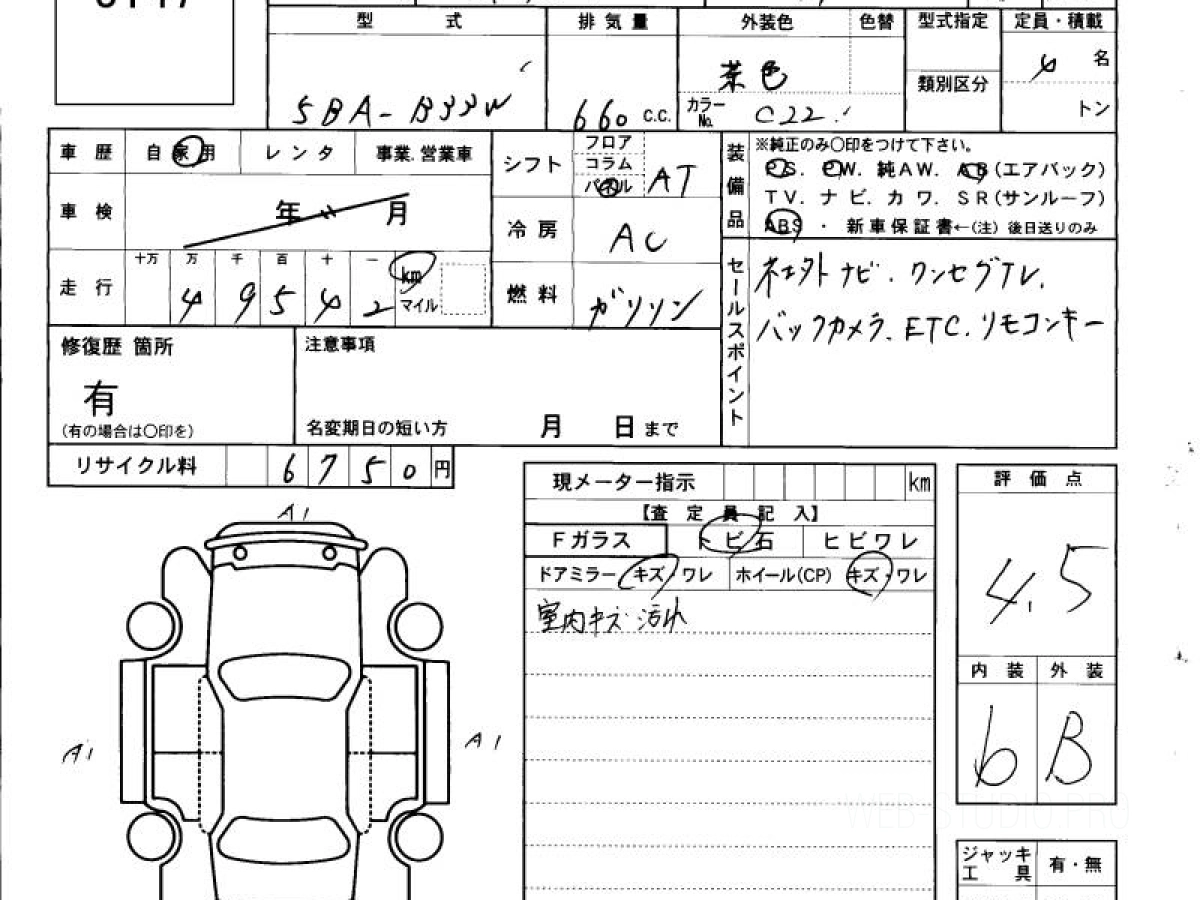 型 式 排気量 外装色 色替 型式指定 定員・積載
5BA-B33W 660 C.C. 茶色 4 名
カラーNo. C22 類別区分 トン
車歴 自家用 レンタ 事業.営業車
シフト フロア コラム パネル AT
装備品 ※純正のみ〇印をつけて下さい。
PS. PW. 純AW. AB(エアバック)
TV. ナビ. カワ. SR(サンルーフ)
ABS ・ 新車保証書←(注) 後日送りのみ
車検 年 月
冷房 AC
走行 十万 万 千 百 十 一
4 9 5 4 2 km マイル
燃料 ガソリン
セールスポイント
ナビ. ワンセグTV.
バックカメラ. ETC. リモコンキー
修復歴 箇所
有
(有の場合は〇印を)
注意事項
名変期日の短い方 月 日まで
リサイクル料 6750円
現メーター指示 km
評価点
4.5
【査定員記入】
Fガラス トビ石 ヒビワレ
ドアミラー キズ・ワレ ホイール(CP) キズ・ワレ
室内キズ 汚れ
内装 外装
6 B
A1
A1
A1
ジャッキ 有・無
工具
WEB-STUDIO.PRO